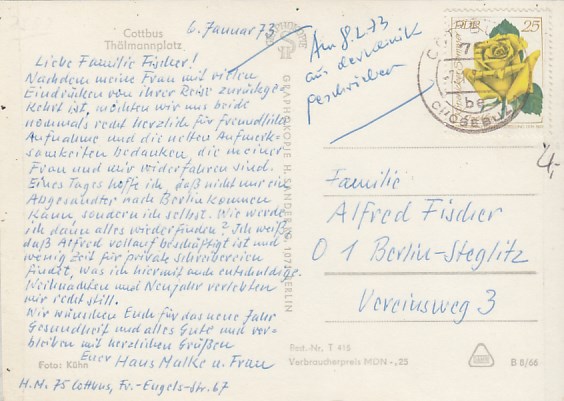 Cottbus
Thälmannplatz
6. Januar 73
Liebe Familie Fischer!
Nachdem meine Frau mit vielen
Eindrücken von ihrer Reise zurückge-
kehrt ist, möchten wir uns beide
nochmals recht herzlich für freundliche
Aufnahme und die netten Aufmerk-
samkeiten bedanken die meiner
Frau und mir widerfahren sind.
Eines Tages hoffe ich, daß nicht nur ein
Abgesandter nach Berlin kommen
kann sondern ich selbst. Wie werde
ich dann alles wiederfinden? Ich weiß
daß Alfred vollauf beschäftigt ist und
wenig Zeit für private Schreibereien
findet, was ich hiermit auch entschuldige.
Weihnachten und Neujahr verlebten
wir recht still.
Wir wünschen Euch für das neue Jahr
Gesundheit und alles Gute und ver-
bleiben mit herzlichen Grüßen
Euer Hans Malke u. Frau
Foto: Kühn
H.M. 75 Cottbus, Fr.-Engels-Str. 67
GRAPHOKOPIE H. SANDER KG, 1071 BERLIN
Am 8.2.73
geschrieben
DDR 25
4,-
Familie
Alfred Fischer
0 1 Berlin-Steglitz
Vereinsweg 3
Best.-Nr. T 415
Verbraucherpreis MDN -,25
B 8/66